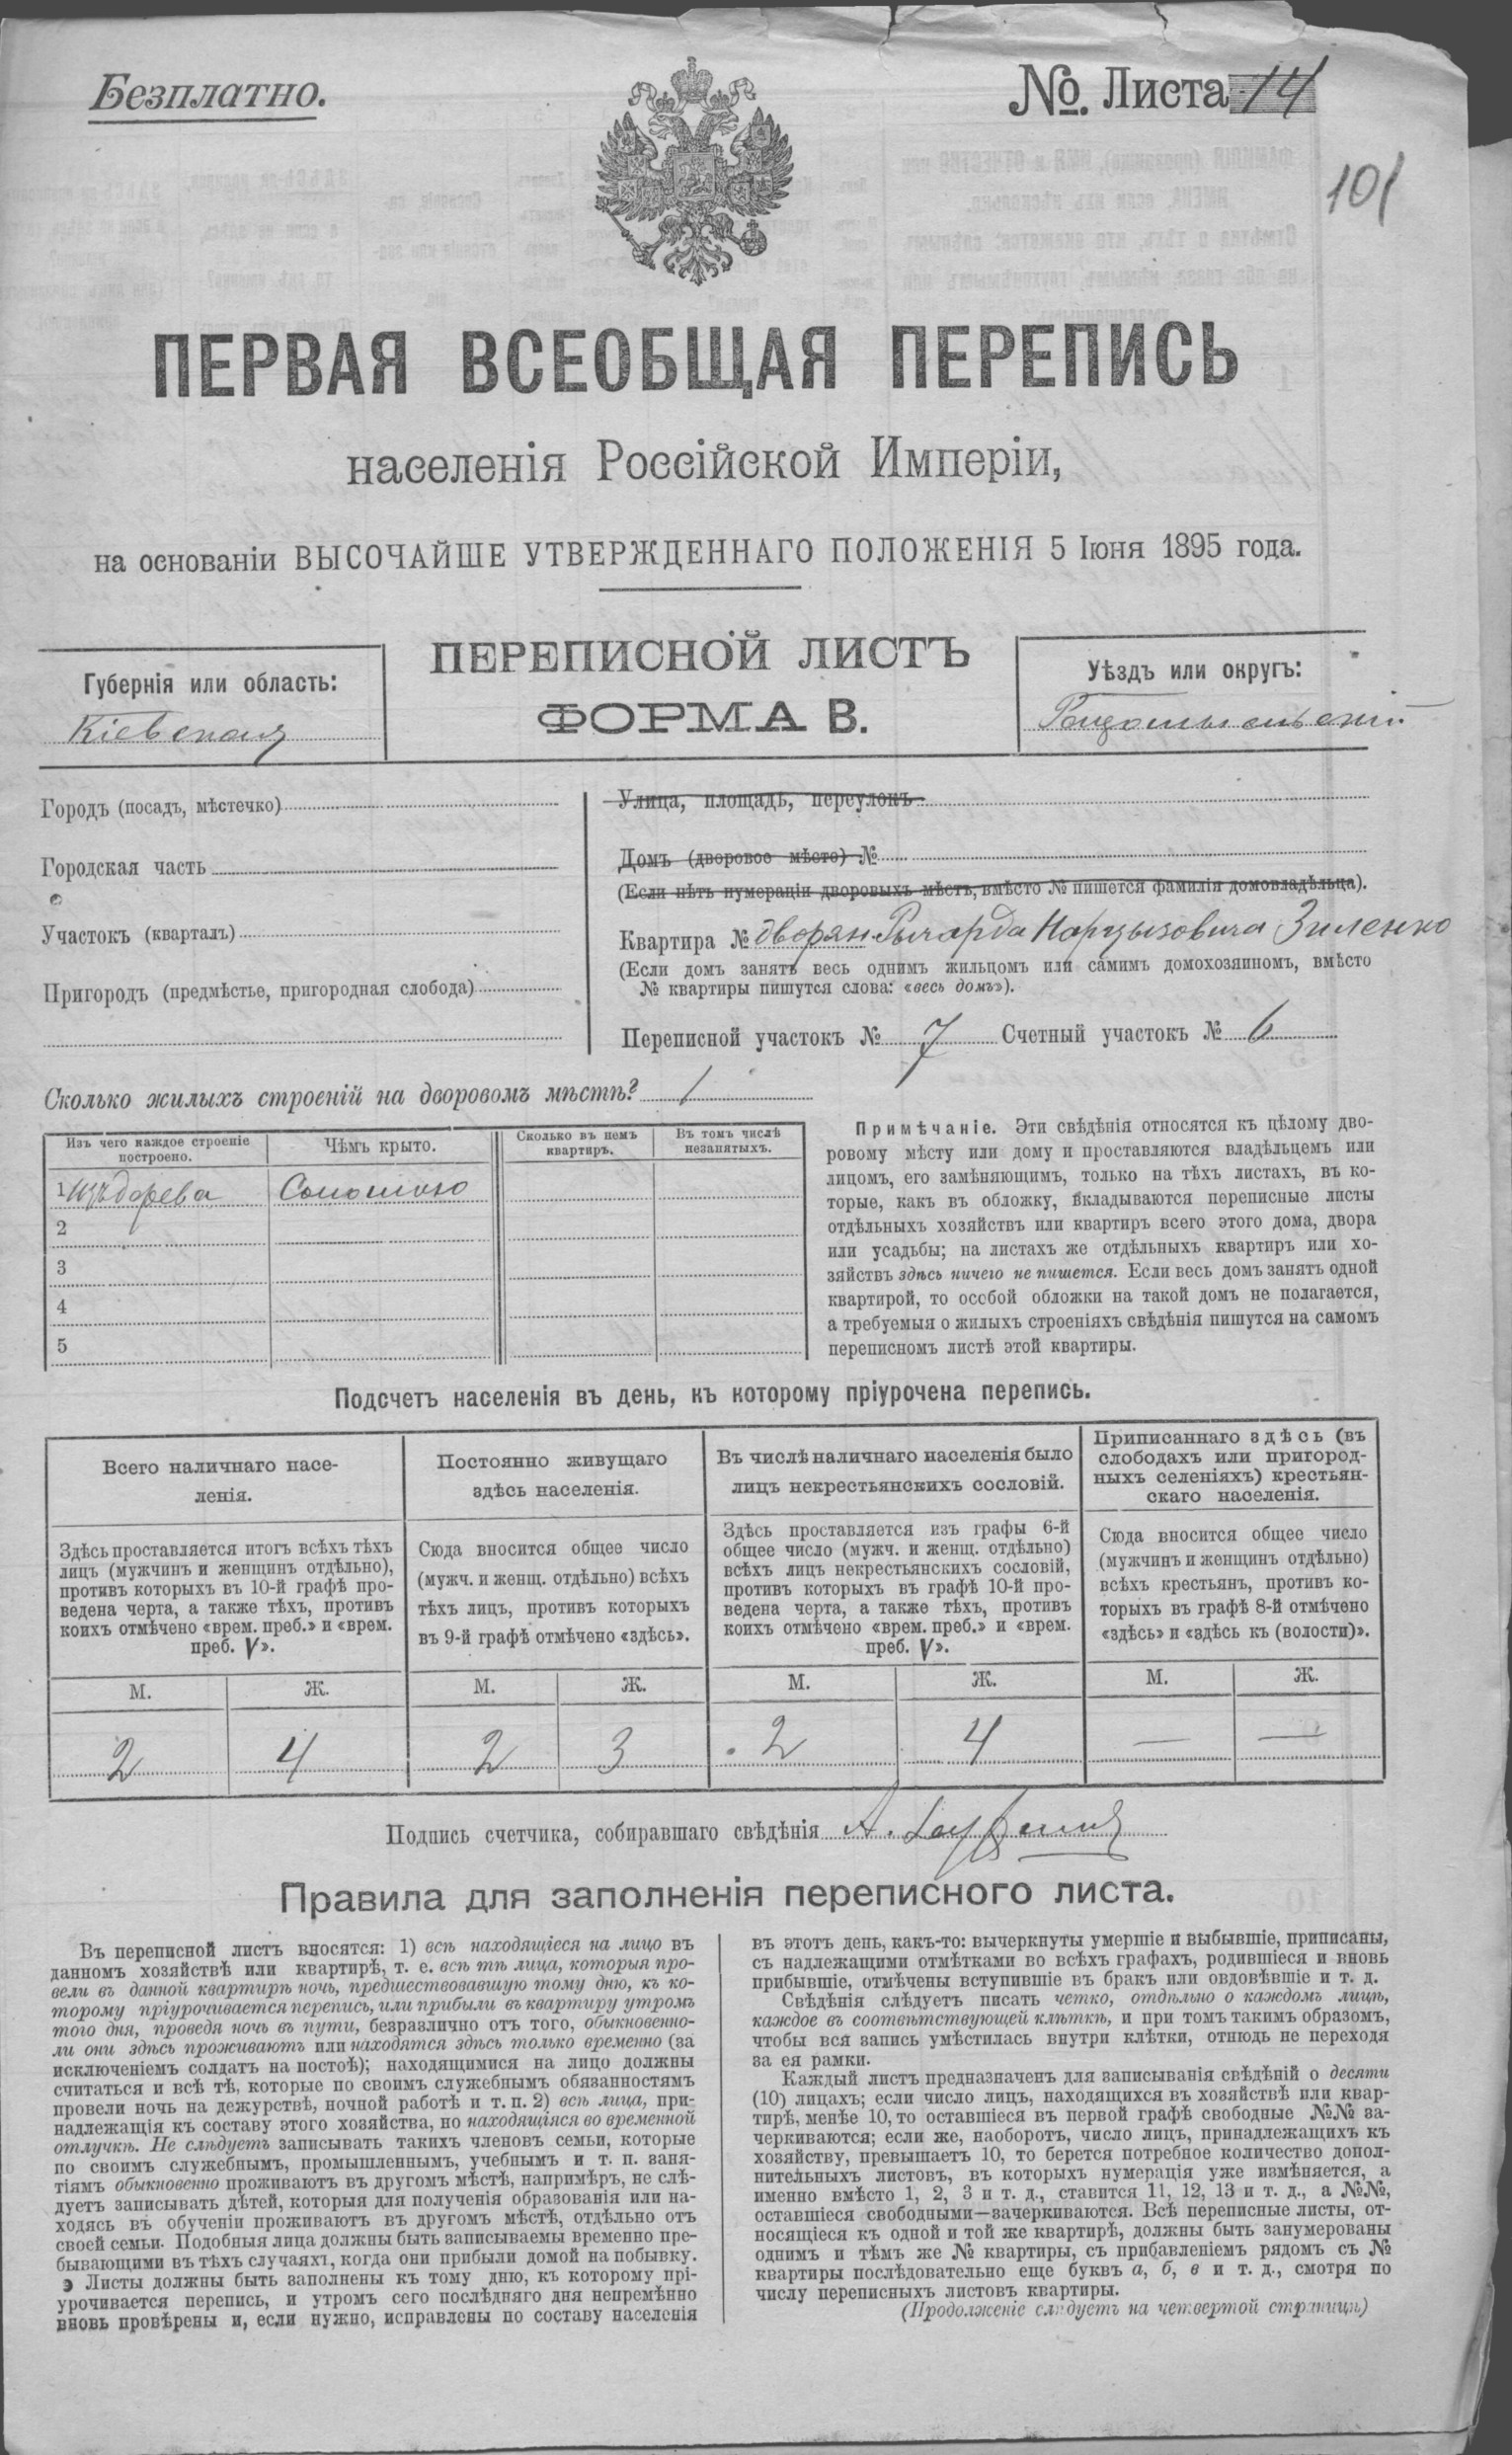 Безплатно.
№. Листа 14
101
ПЕРВАЯ ВСЕОБЩАЯ ПЕРЕПИСЬ
населенія Россійской Имперіи,
на основаніи ВЫСОЧАЙШЕ УТВЕРЖДЕННАГО ПОЛОЖЕНІЯ 5 Іюня 1895 года.
ПЕРЕПИСНОЙ ЛИСТЪ
ФОРМА В.
Губернія или область:
Кіевская
Уѣздъ или округъ:
Городъ (посадъ, мѣстечко)
Городская часть
Участокъ (кварталъ)
Пригородъ (предмѣстье, пригородная слобода)
Улица, площадь, переулокъ
Домъ (дворовое мѣсто) №
(Если нѣтъ нумераціи дворовыхъ мѣстъ, вмѣсто № пишется фамилія домовладѣльца).
Квартира № дворян. Рычарда Нарцызовича Зиленко
(Если домъ занятъ весь однимъ жильцомъ или самимъ домохозяиномъ, вмѣсто
№ квартиры пишутся слова: «весь домъ»).
Переписной участокъ № 7 Счетный участокъ № 6
Сколько жилыхъ строеній на дворовомъ мѣстѣ? 1
Изъ чего каждое строеніе
построено.
Чѣмъ крыто.
Сколько въ немъ
квартиръ.
Въ томъ числѣ
незанятыхъ.
1 Изъ дерева Соломою
2
3
4
5
Примѣчаніе. Эти свѣдѣнія относятся къ цѣлому дво-
ровому мѣсту или дому и проставляются владѣльцемъ или
лицомъ, его замѣняющимъ, только на тѣхъ листахъ, въ ко-
торые, какъ въ обложку, вкладываются переписные листы
отдѣльныхъ хозяйствъ или квартиръ всего этого дома, двора
или усадьбы; на листахъ же отдѣльныхъ квартиръ или хо-
зяйствъ здѣсь ничего не пишется. Если весь домъ занятъ одной
квартирой, то особой обложки на такой домъ не полагается,
а требуемыя о жилыхъ строеніяхъ свѣдѣнія пишутся на самомъ
переписномъ листѣ этой квартиры.
Подсчетъ населенія въ день, къ которому пріурочена перепись.
Всего наличнаго насе-
ленія.
Здѣсь проставляется итогъ всѣхъ тѣхъ
лицъ (мужчинъ и женщинъ отдѣльно),
противъ которыхъ въ 10-й графѣ про-
ведена черта, а также тѣхъ, противъ
коихъ отмѣчено «врем. преб.» и «врем.
преб. V».
Постоянно живущаго
здѣсь населенія.
Сюда вносится общее число
(мужч. и женщ. отдѣльно) всѣхъ
тѣхъ лицъ, противъ которыхъ
въ 9-й графѣ отмѣчено «здѣсь».
Въ числѣ наличнаго населенія было
лицъ некрестьянскихъ сословій.
Здѣсь проставляется изъ графы 6-й
общее число (мужч. и женщ. отдѣльно)
всѣхъ лицъ некрестьянскихъ сословій,
противъ которыхъ въ графѣ 10-й про-
ведена черта, а также тѣхъ, противъ
коихъ отмѣчено «врем. преб.» и «врем.
преб. V».
Приписаннаго здѣсь (въ
слободахъ или пригород-
ныхъ селеніяхъ) крестьян-
скаго населенія.
Сюда вносится общее число
(мужчинъ и женщинъ отдѣльно)
всѣхъ крестьянъ, противъ ко-
торыхъ въ графѣ 8-й отмѣчено
«здѣсь» и «здѣсь къ (волости)».
М. Ж. М. Ж. М. Ж. М. Ж.
2 4 2 3 2 4 — —
Подпись счетчика, собиравшаго свѣдѣнія А.
Правила для заполненія переписного листа.
Въ переписной листъ вносятся: 1) всѣ находящіеся на лицо въ
данномъ хозяйствѣ или квартирѣ, т. е. всѣ тѣ лица, которыя про-
вели въ данной квартирѣ ночь, предшествовавшую тому дню, къ ко-
торому пріурочивается перепись, или прибыли въ квартиру утромъ
того дня, проведя ночь въ пути, безразлично отъ того, обыкновенно-
ли они здѣсь проживаютъ или находятся здѣсь только временно (за
исключеніемъ солдатъ на постоѣ); находящимися на лицо должны
считаться и всѣ тѣ, которые по своимъ служебнымъ обязанностямъ
провели ночь на дежурствѣ, ночной работѣ и т. п. 2) всѣ лица, при-
надлежащія къ составу этого хозяйства, но находящіяся во временной
отлучкѣ. Не слѣдуетъ записывать такихъ членовъ семьи, которые
по своимъ служебнымъ, промышленнымъ, учебнымъ и т. п. заня-
тіямъ обыкновенно проживаютъ въ другомъ мѣстѣ, напримѣръ, не слѣ-
дуетъ записывать дѣтей, которыя для полученія образованія или на-
ходясь въ обученіи проживаютъ въ другомъ мѣстѣ, отдѣльно отъ
своей семьи. Подобныя лица должны быть записываемы временно пре-
бывающими въ тѣхъ случаяхъ, когда они прибыли домой на побывку.
Листы должны быть заполнены къ тому дню, къ которому прі-
урочивается перепись, и утромъ сего послѣдняго дня непремѣнно
вновь провѣрены и, если нужно, исправлены по составу населенія
въ этотъ день, какъ-то: вычеркнуты умершіе и выбывшіе, приписаны,
съ надлежащими отмѣтками во всѣхъ графахъ, родившіеся и вновь
прибывшіе, отмѣчены вступившіе въ бракъ или овдовѣвшіе и т. д.
Свѣдѣнія слѣдуетъ писать четко, отдѣльно о каждомъ лицѣ,
каждое въ соотвѣтствующей клѣткѣ, и при томъ такимъ образомъ,
чтобы вся запись умѣстилась внутри клѣтки, отнюдь не переходя
за ея рамки.
Каждый листъ предназначенъ для записыванія свѣдѣній о десяти
(10) лицахъ; если число лицъ, находящихся въ хозяйствѣ или квар-
тирѣ, менѣе 10, то оставшіеся въ первой графѣ свободные №№ за-
черкиваются; если же, наоборотъ, число лицъ, принадлежащихъ къ
хозяйству, превышаетъ 10, то берется потребное количество допол-
нительныхъ листовъ, въ которыхъ нумерація уже измѣняется, а
именно вмѣсто 1, 2, 3 и т. д., ставится 11, 12, 13 и т. д., а №№,
оставшіеся свободными—зачеркиваются. Всѣ переписные листы, от-
носящіеся къ одной и той же квартирѣ, должны быть занумерованы
однимъ и тѣмъ же № квартиры, съ прибавленіемъ рядомъ съ №
квартиры послѣдовательно еще буквъ а, б, в и т. д., смотря по
числу переписныхъ листовъ квартиры.
(Продолженіе слѣдуетъ на четвертой страницѣ)